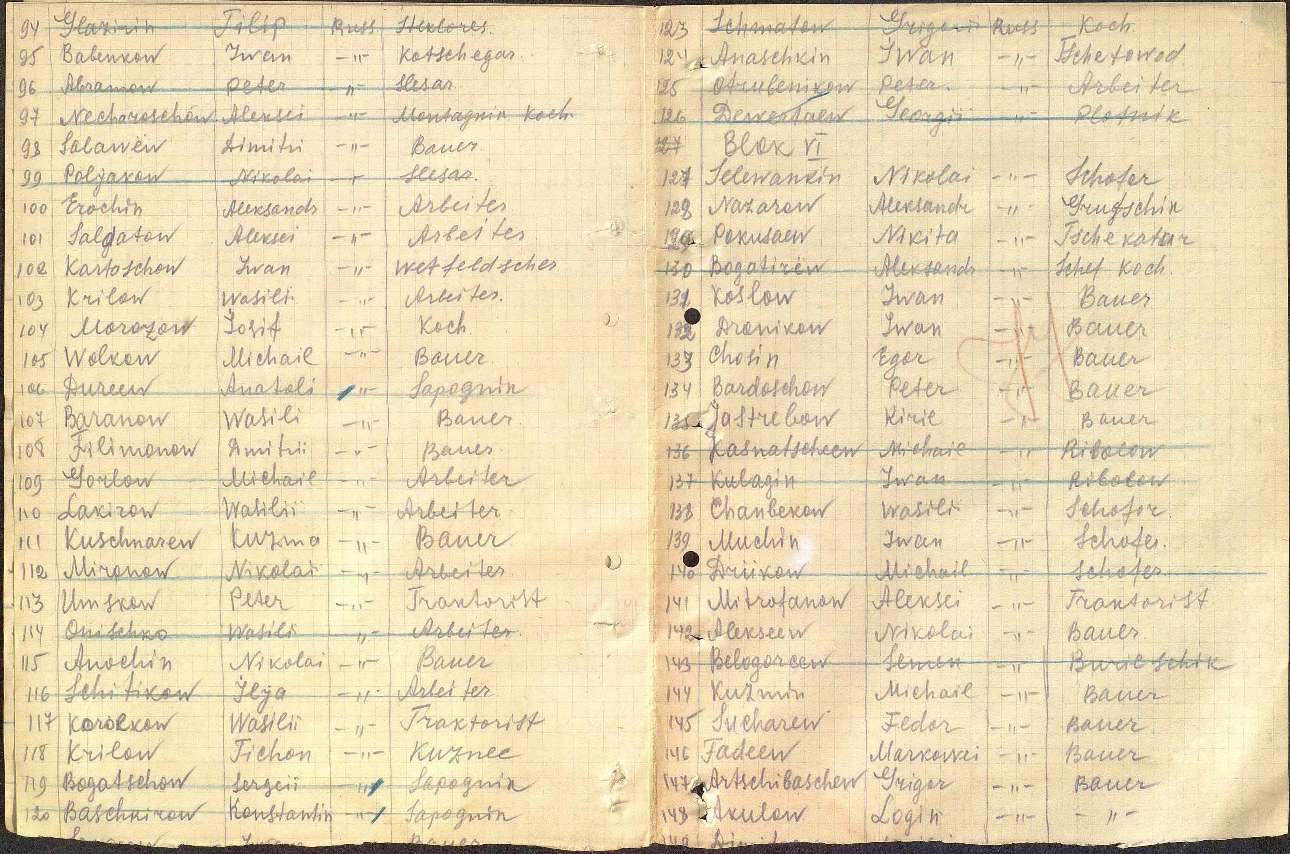 94 Glazirin Filip Russ Stextores.
95 Babenkow Iwan -"- Kotschegar.
96 Abramow Peter " Slesar
97 Necharoschöw Aleksei -"- Montagnin Koch
98 Solawëw Dimitri -"- Bauer.
99 Poljakow Nikolai -"- Slesar.
100 Erochin Aleksandr -"- Arbeiter
101 Saldatow Aleksei -"- Arbeiter
102 Kartoschow Iwan -"- Wetfeldscher
103 Krilow Wasili -"- Arbeiter.
104 Morozow Iosif -"- Koch
105 Wolkow Michail -"- Bauer.
106 Dureew Anatoli -"- Sapognik
107 Baranow Wasili -"- Bauer.
108 Filimonow Dmitrii -"- Bauer.
109 Gorlow Michail -"- Arbeiter
110 Lakizow Wasilii -"- Arbeiter
111 Kuschnarew Kuzma -"- Bauer
112 Mironow Nikolai -"- Arbeiter
113 Umskow Peter -"- Traktorist
114 Onischko Wasili -"- Arbeiter.
115 Anochin Nikolai -"- Bauer
116 Schitikow Ilya -"- Arbeiter
117 Korolkow Wasilii -"- Traktorist
118 Krilow Tichon -"- Kuznec
119 Bogatschow Sergeii -"- Sapognik
120 Baschkirow Konstantin -"- Sapognik
123 Schmatow Grigorii Russ Koch.
124 Anaschkin Iwan -"- Tschetowod
125 Otrubenikow Peter. -"- Arbeiter
126 Georgii -"- Plotnik
127 Blok VI
127 Selewankin Nikolai -"- Schofer
128 Nazarow Aleksandr -"- Grugschik
129 Pokusaew Nikita -"- Tschekatur
130 Bogatirëw Aleksandr -"- Schef Koch.
131 Koslow Iwan -"- Bauer
132 Dronikow Iwan -"- Bauer
133 Chosin Egor -"- Bauer
134 Bardoschow Peter -"- Bauer
135 Jastrebow Kiril -"- Bauer
136 Kasnatscheew Michail -"- Ribolow
137 Kulagin Iwan -"- Ribolow
138 Chanbekow Wasili -"- Schofer.
139 Muchin Iwan -"- Schofer.
140 Drüikow Michail -"- Schofer
141 Mitrofanow Aleksei -"- Traktorist
142 Alekseew Nikolai -"- Bauer
143 Belogorcew Semen -"- Burilschik
144 Kuzmin Michail -"- Bauer
145 Sucharew Fedor -"- Bauer
146 Fadeew Markowei -"- Bauer
147 Artschibaschew Grigor -"- Bauer
148 Akulow Login -"- -"-